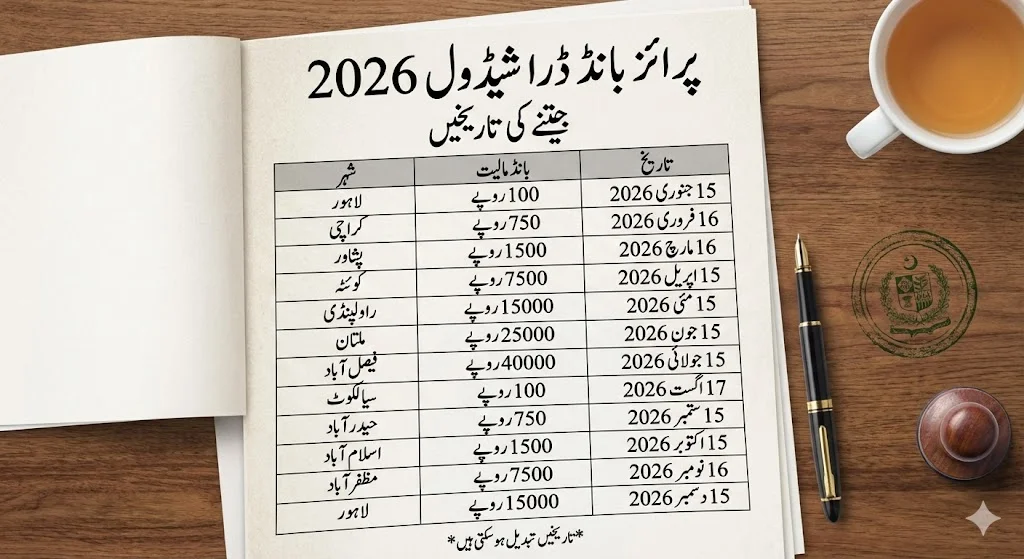 پرائز بانڈ ڈرا شیڈول 2026
جتنے کی تاریخیں
تاریخ بانڈ مالیت شہر
15 جنوری 2026 100 روپے لاہور
16 فروری 2026 750 روپے کراچی
16 مارچ 2026 1500 روپے پشاور
15 اپریل 2026 7500 روپے کوئٹہ
15 مئی 2026 15000 روپے راولپنڈی
15 جون 2026 25000 روپے ملتان
15 جولائی 2026 40000 روپے فیصل آباد
17 اگست 2026 100 روپے سیالکوٹ
15 ستمبر 2026 750 روپے حیدر آباد
15 اکتوبر 2026 1500 روپے اسلام آباد
16 نومبر 2026 7500 روپے مظفر آباد
15 دسمبر 2026 15000 روپے لاہور
*تاریخیں تبدیل ہو سکتی ہیں*